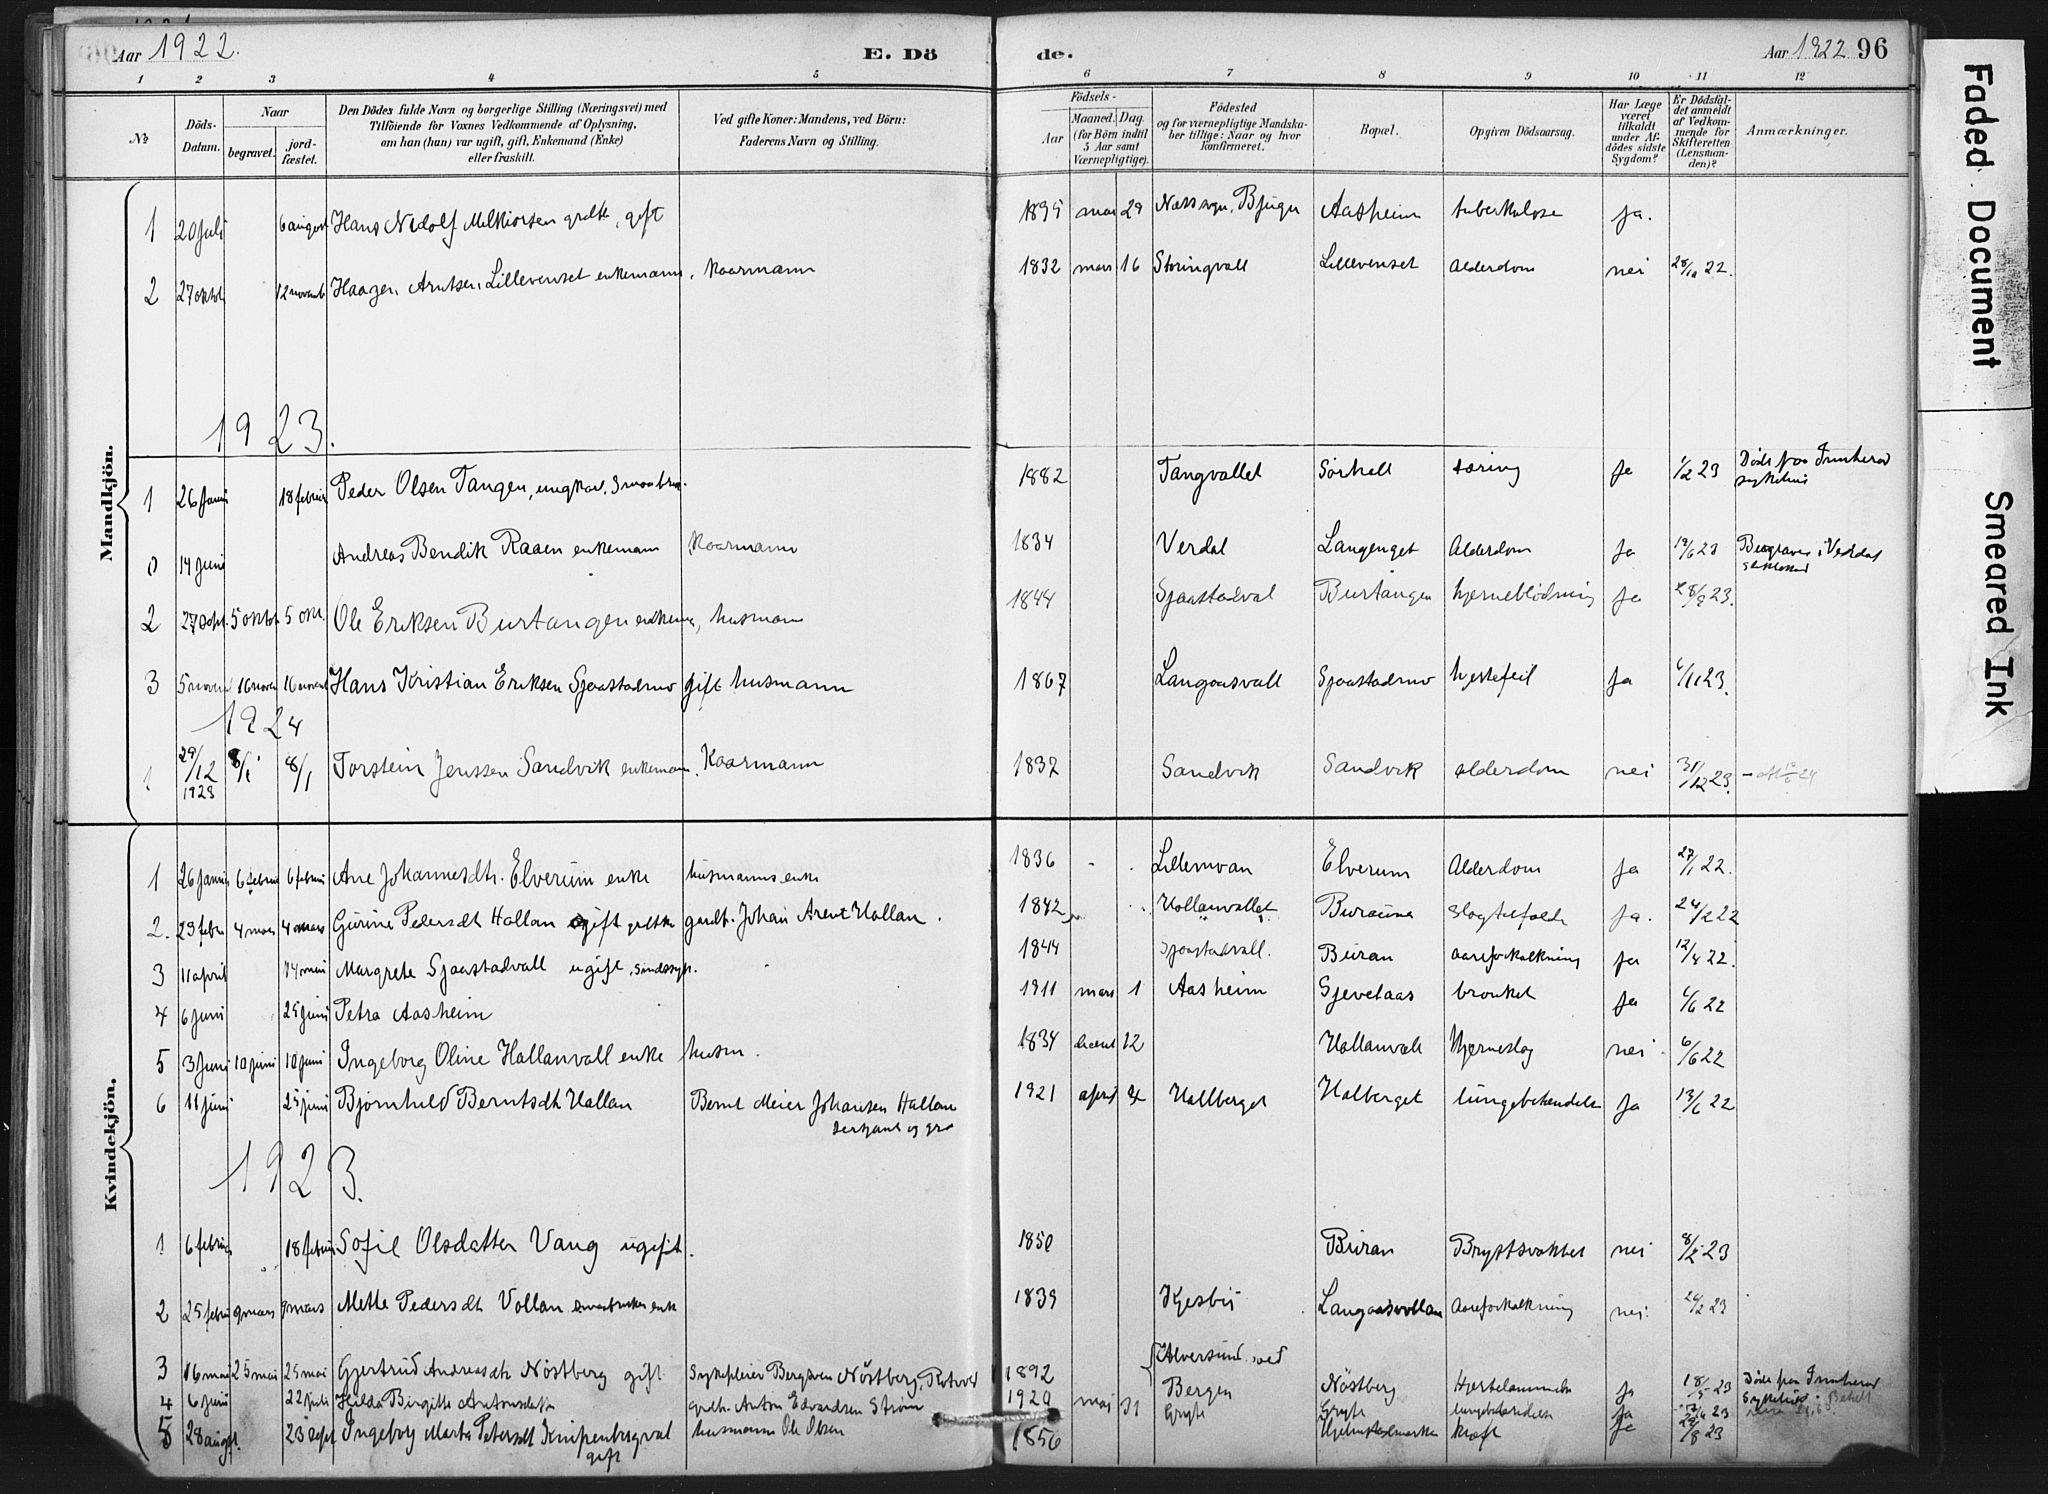 Aar 1922. E. Dö de. Aar 1922 96
1 2 3 4 5 6 7 8 9 10 11 12
№
Döds-Datum.
Naar
begravet.
jord-fæstet.
Den Dödes fulde Navn og borgerlige Stilling (Næringsvei) med
Tilföiende for Voxnes Vedkommende af Oplysning,
om han (hun) var ugift, gift, Enkemand (Enke)
eller fraskilt.
Ved gifte Koner: Mandens, ved Börn:
Faderens Navn og Stilling.
Födsels-
Aar
Maaned. Dag.
(for Börn indtil
5 Aar samt
Værnepligtige).
Födested
og for værnepligtige Mandska-
ber tillige: Naar og hvor
konfirmeret.
Bopæl.
Opgiven Dödsaarsag.
Har Læge
været
tilkaldt
under Af-
dödes sidste
Sygdom?
Er Dödsfal-
det anmeldt
af Vedkom-
mende for
Skifteretten
(Lensman-
den)?
Anmærkninger.
Mandkjön.
1 20 juli 6 august Hans Nidolf Melkiorsen gift 1895 mai 29 Bjugn Aasheim tuberkulose ja.
2 27 oktob 12 novemb Haagen Arntsen Lillevenset enkemann, kaarmann 1832 mars 16 Storingvall Lillevenset Alderdom nei 28/10 22.
1923.
1 26 janu 18 februar Peder Olsen Tangen, ungkar, 1882 Tangvallet Sörhell tæring ja 1/2 23 Döde paa Innherad sykehus
0 14 juni Andreas Bendik Raaen enkemann kaarmann 1834 Verdal Langenget Alderdom ja 23 i Verdal
2 27 sept. 5 oktob 5 okt. Ole Eriksen Burtangen husmann 1844 Sjaastadval Burtangen hjerneblödning ja 28/9 23.
3 5 novem 16 novem 16 novemb Hans Kristian Eriksen Sjaastadruv gift husmann 1867 Langaasvall Sjaastadruv hjertefeil ja 6/11 23.
1924
1 29/12 1923 8/1 8/1 Torstein Jenssen Sandvik enkemann, kaarmann 1837 Sandvik Sandvik alderdom nei 31/12 23.
Kvindekjön.
1 26 januar 6 februar 6 februar Ane Johannesdtr. Elverum enke husmanns enke 1836 Lillemoan Elverum Alderdom ja 27/1 22.
2. 23 febr 4 mars 4 mars Gurine Pedersdt Hallan gift gardb. Johan Arent Hallan. 1842 Hallanvallet slagtilfælde ja. 24/2 22
3 11 april 14 mai Margrete Sjaastadvall ugift, sindssyk. 1844 Sjaastadvall. Buran aareforkalkning ja 12/4 22.
4 6 juni 25 juni Petra Aasheim 1911 mars 1 Aasheim Sjevelaas bronket ja 6/6 22
5 3 juni 10 juni 10 juni Ingeborg Oline Hallanvall enke husm. 1834 decemb 12 Hallanvall Hjerneslag nei 6/6 22
6 11 juni 25 juni Bjørnhild Berntsdt Hallan Bernt Meier Johansen Hallan sersjant og 1921 april 4 Hallberget Halberget lungebetændelse ja 13/6 22
1923.
1 6 februar 18 februar Sofie Olsdatter Vang ugift. 1850 Buran Brystsvakhet nei 8/2 23
2 25 febru 9 mars 9 mars Mette Pedersdt Vollan enke 1839 Kjesbu Langaasvollan Aareforkalkning nei 26/2 23
3 16 mai 25 mai 25 mai Gjertrud Andreasdt Nöstberg gift Sykepleier Bergsven Nöstberg, 1892 Alversund ved Bergen Nöstberg Hjertelammelse ja 18/5 23 Döde paa Innherad Sykehus
4 6 juni 22 juli Hilda Birgitte Antonsdatter gardb. Anton Edvardsen Strøm 1920 mai 31 Gryte Gryte lungebetændelse ja 23
5 28 august. 23 sept Ingeborg Marta Petersdt Knipenbergval gift husmann Ole Olsen 1856 kræft ja 29/8 23
Faded Document
Smeared Ink